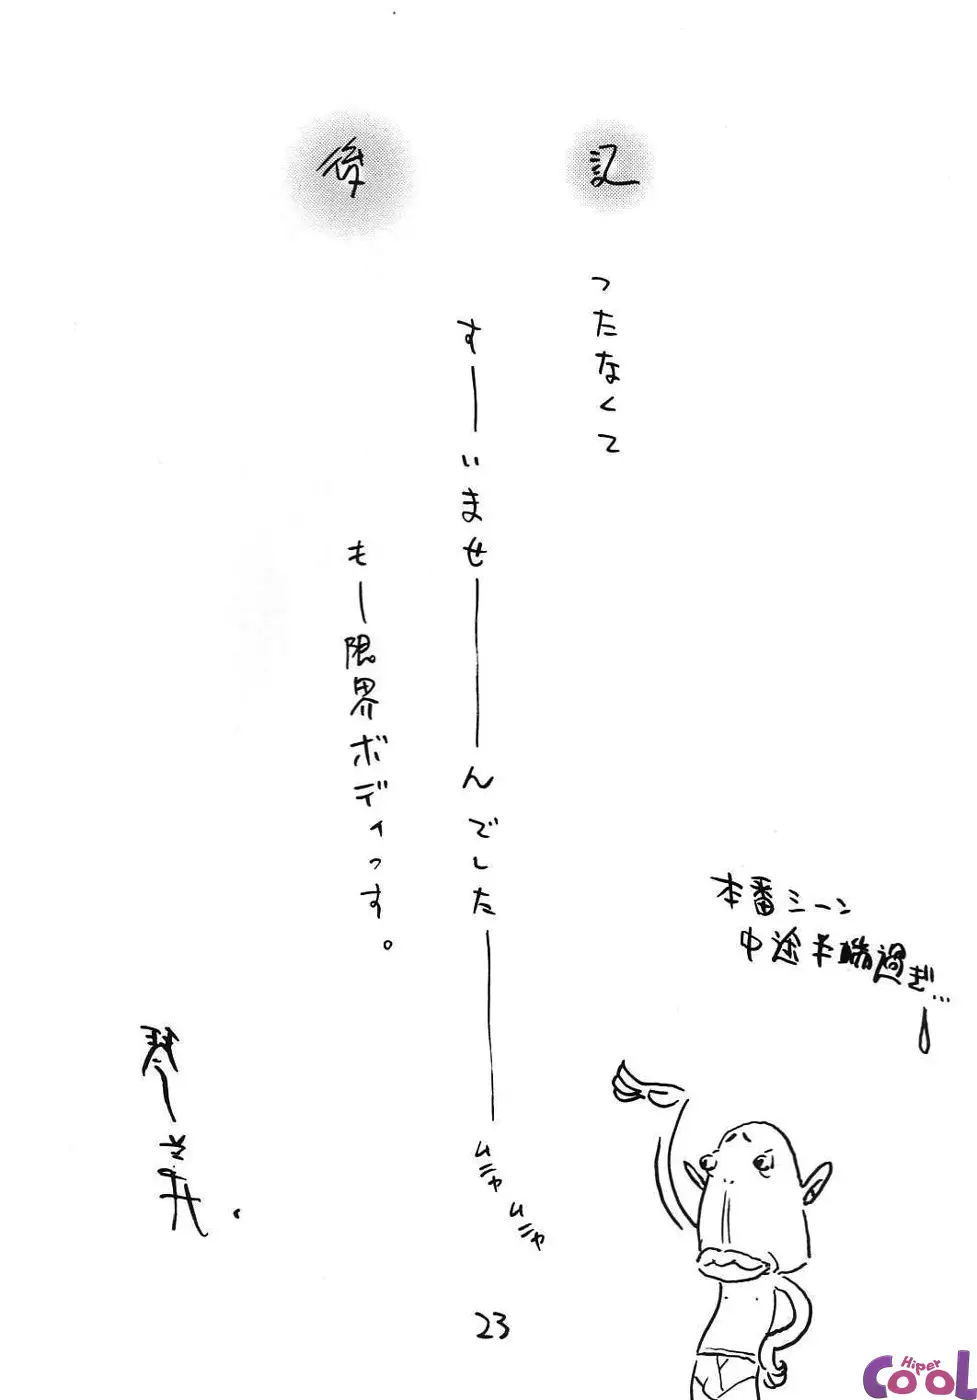 後記
つたなくて
すーいませーんでしたー ムニャ ムニャ
もー限界ボディっす。
本番シーン
中途半端過ぎ…
23
Hiper
CooL